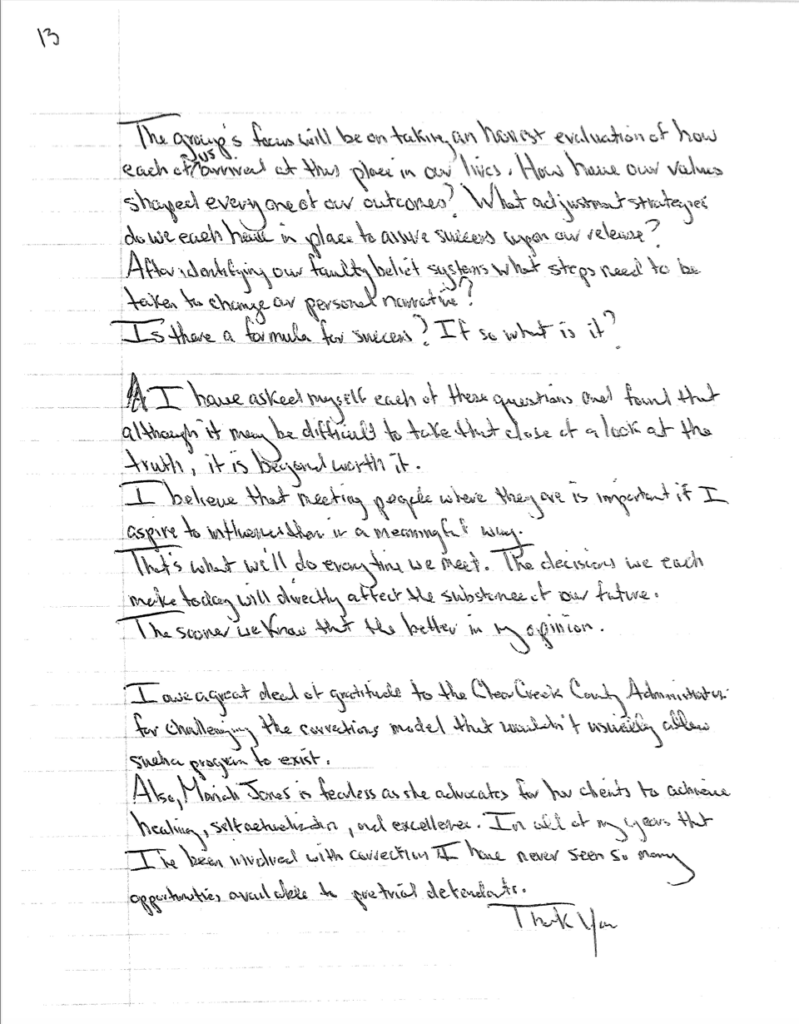 13
The group's focus will be on taking an honest evaluation of how
each of us arrived at this place in our lives. How have our values
shaped everyone of our outcomes? What adjustment strategies
do we each have in place to assure success upon our release?
After identifying our faulty belief systems what steps need to be
taken to change our personal narrative?
Is there a formula for success? If so what is it?
I have asked myself each of these questions and found that
although it may be difficult to take that close of a look at the
truth, it is beyond worth it.
I believe that meeting people where they are is important if I
aspire to influence them in a meaningful way.
That's what we'll do everytime we meet. The decisions we each
make today will directly affect the substance of our future.
The sooner we know that the better in my opinion.
I owe a great deal of gratitude to the Clear Creek County
for challenging the corrections model that wouldn't usually allow
such a program to exist.
Also, Mariah Jones is fearless as she advocates for her clients to achieve
healing, self actualization, and excellence. In all of my years that
I've been involved with correction I have never seen so many
opportunities available to pretrial defendants.
Thank You